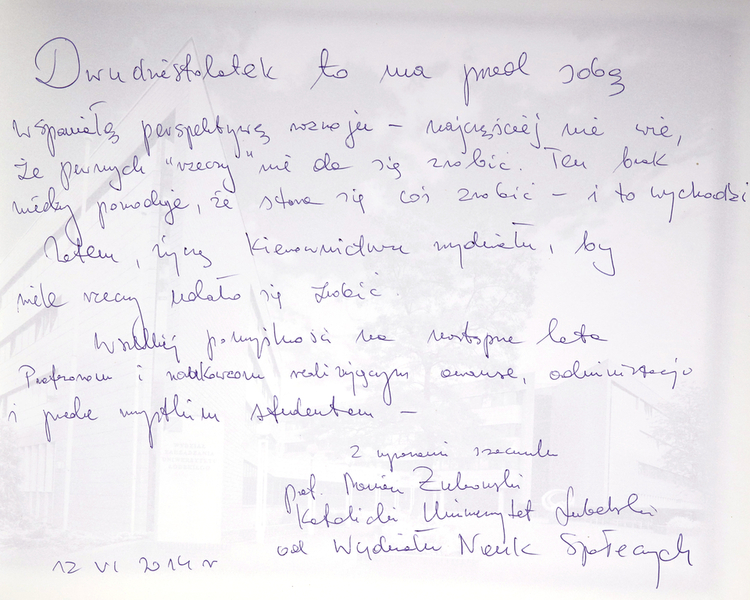 Dwudziestolatek to ma przed sobą
wspaniałą perspektywę rozwoju – najczęściej nie wie,
że pewnych "rzeczy" nie da się zrobić. Ten brak
wiedzy powoduje, że stara się coś zrobić – i to wychodzi
Zatem, życzę Kierownictwu wydziału, by
wiele rzeczy udało się zrobić.
Wszelkiej pomyślności na następne lata
Profesorom i naukowcom realizującym awanse, administracji
i przede wszystkim studentom –
Z wyrazami szacunku
prof. Żukowski
Katolicki Uniwersytet Lubelski
od Wydziału Nauk Społecznych
12 VI 2014 r